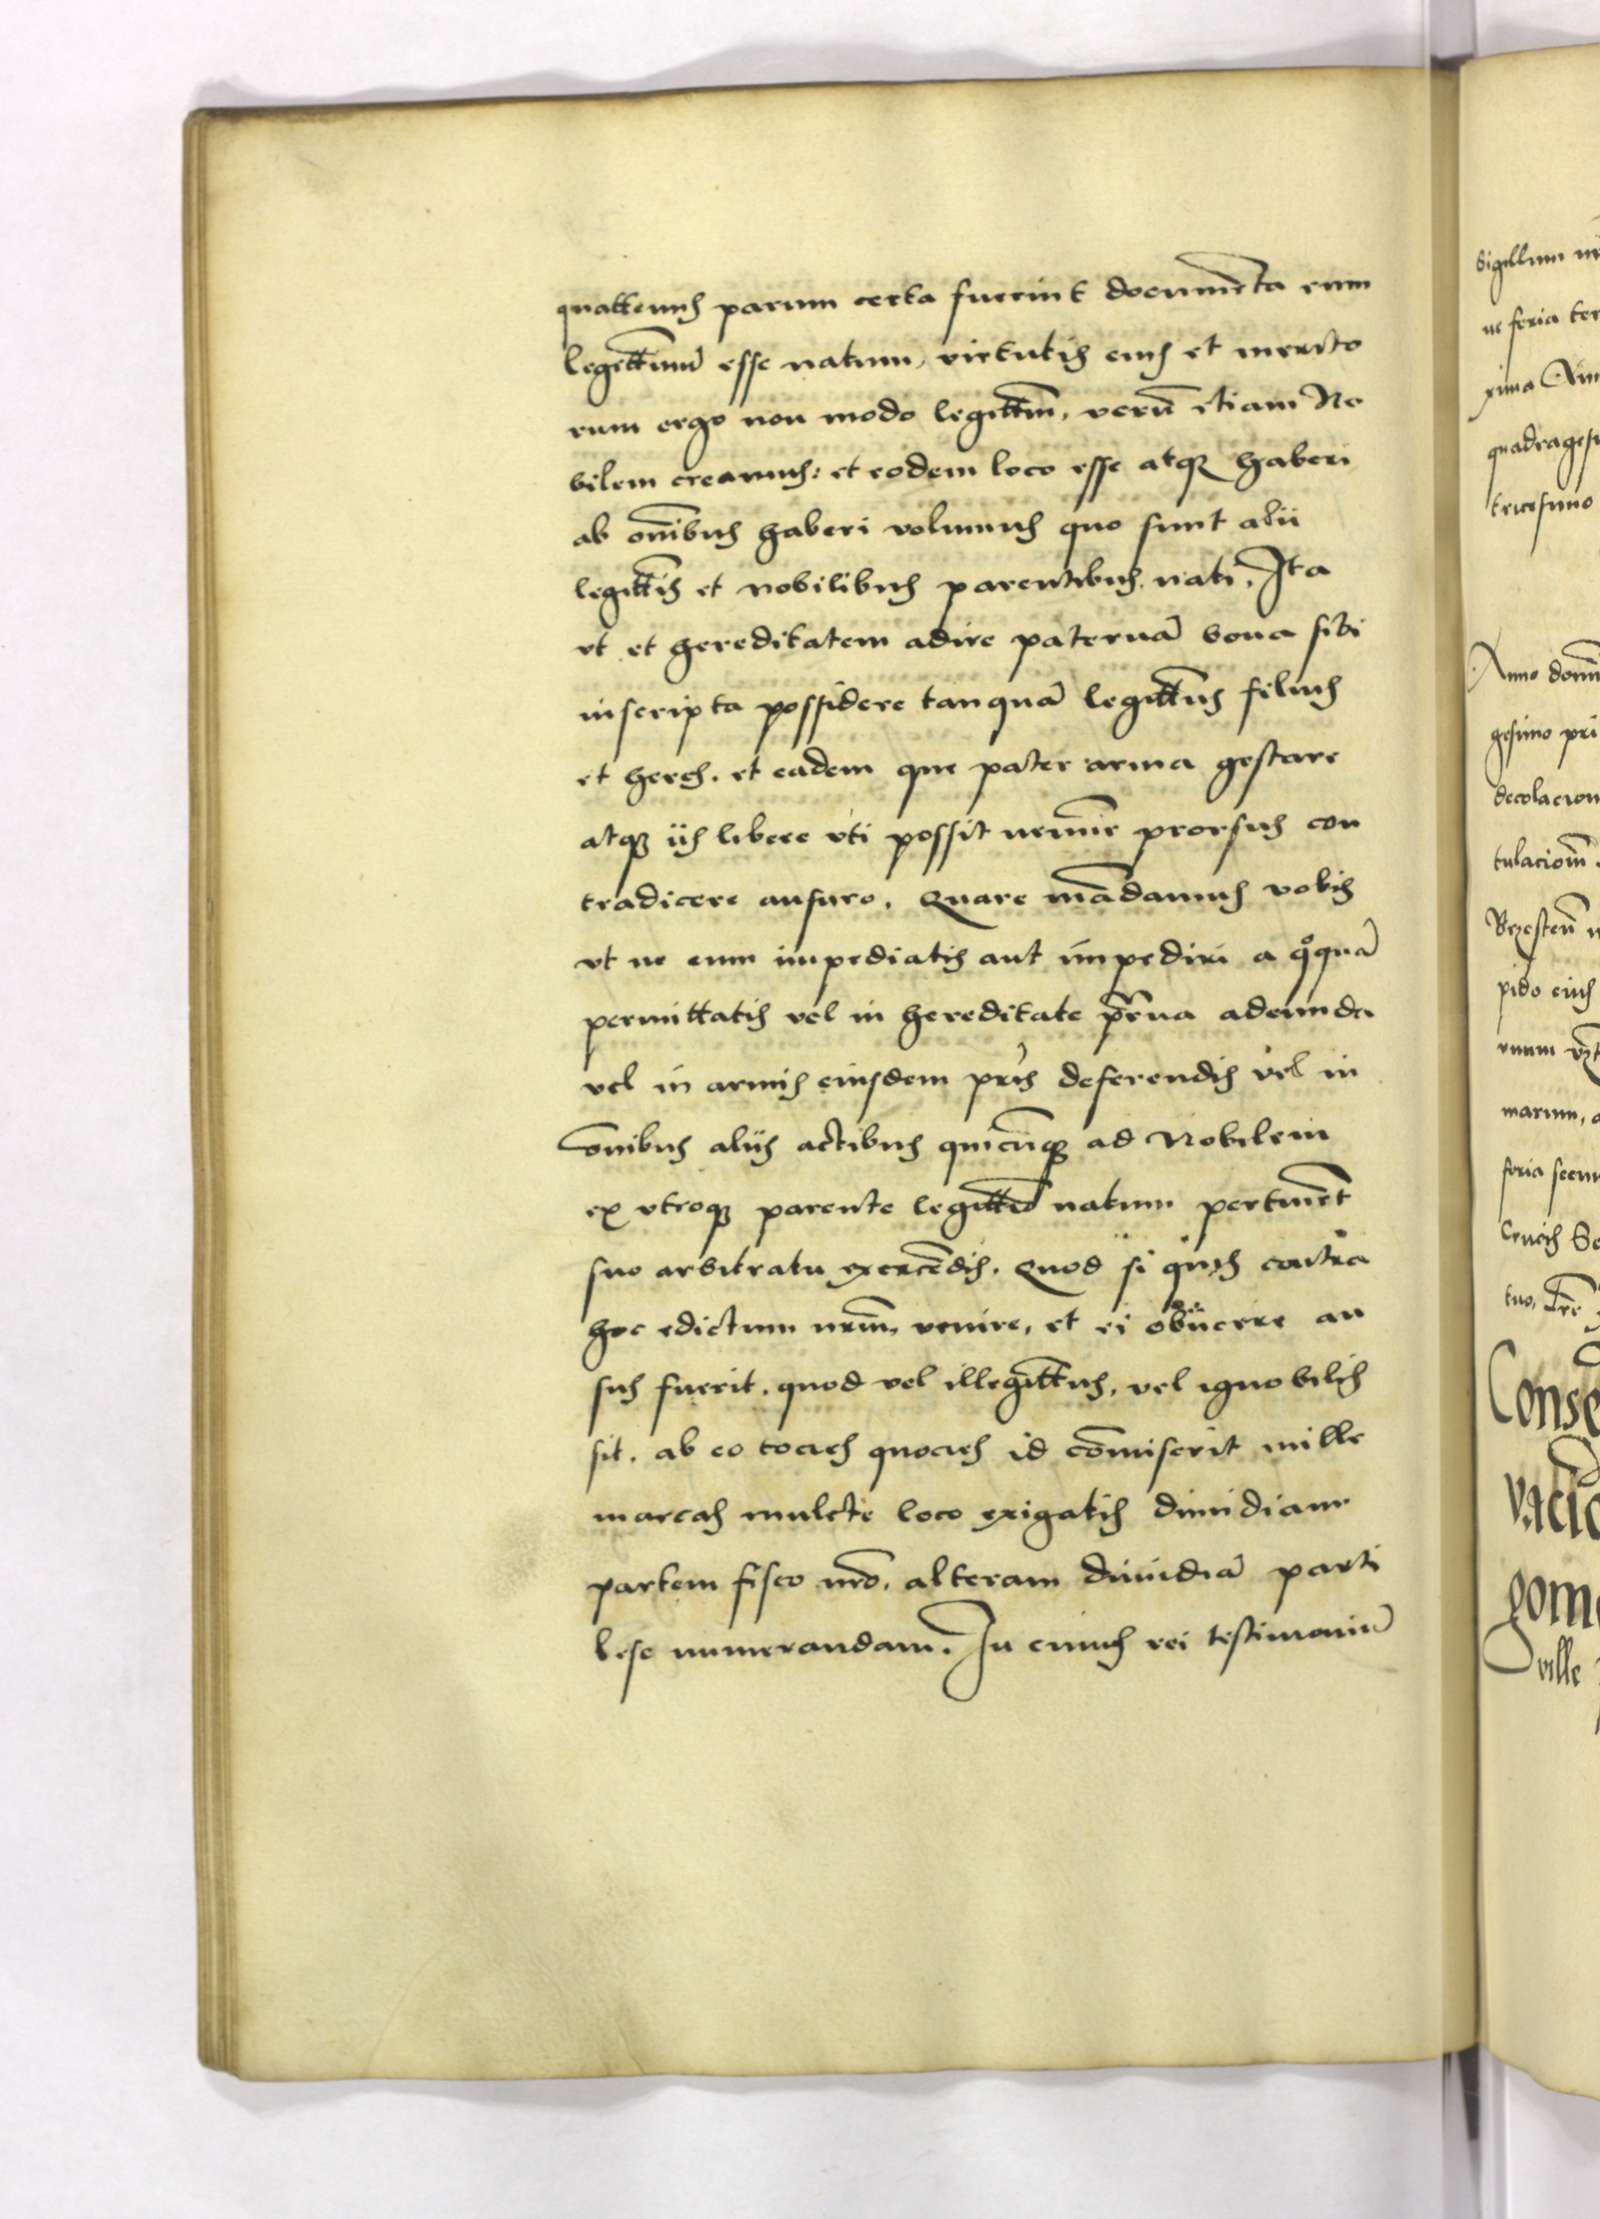 quattenus parum certa fuerint documēta eum
legittimū esse natum, virtutis eius et merito
rum ergo non modo legittīm, verū etiam No
bilem creamus: et eodem loco esse atqꝫ haberi
ab om̄ibus haberi volumus quo sunt alii
legittīs et nobilibus parentibus nati, Ita
vt et hereditatem adire paternā bona sibi
inscripta possidere tanquā legittīus filius
et heres, et eadem que pater arma gestare
atqꝫ iis libere vti possit nemīe prorsus con
tradicere ausuro, Quare mādamus vobis
vt ne eum impediatis aut impediri a qͦquā
permittatis vel in hereditate pr̄na adeunda
vel in armis eiusdem pr̄is deferendis vel in
om̄ibus aliis actibus quicūqꝫ ad Nobilem
ex vtroqꝫ parente legittīo natum pertinēt
suo arbitratu exercēdis. Quod si quis contra
hoc edictum nrm̄, venire, et ei obiicere au
sus fuerit, quod vel illegittīus, vel ignobilis
sit, ab eo tocies quocies id cōmiserit mille
marcas mulcte loco exigatis dimidiam
partem fisco nrō, alteram dimidiā parti
lese numerandam. In cuius rei testimoniū
Sigillum
ne feria ter
xima Ann
quadragesi
tricesimo
Anno domī
gesimo pri
decolacion
tulacioīm
pido eius
vnum
marum,
feria secun
Crucis
tuo,
Conse
vacio
gom
ville